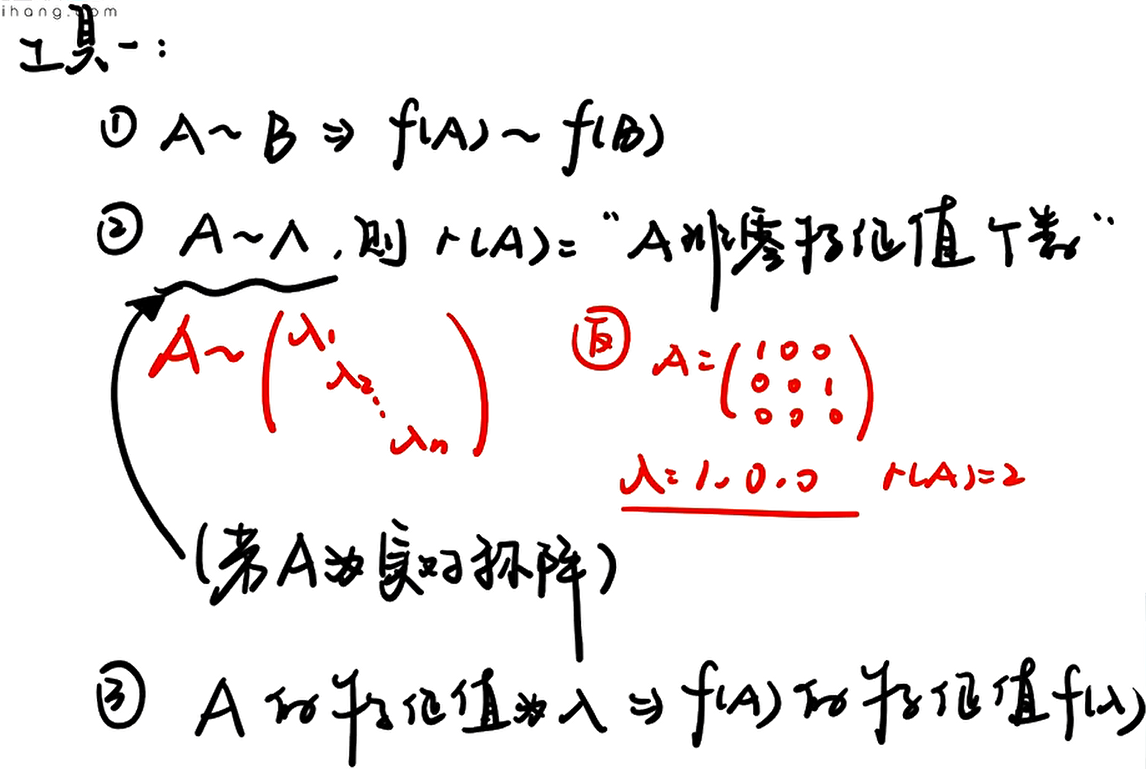 ihang.com
工具一:
① A~B ⇒ f(A)~f(B)
② A~Λ,则 r(A)= "A非零特征值个数"
A~(λ₁ λ₂ ⋱ λₙ)
反 A=(1 0 0
0 0 1
0 0 0)
λ=1,0,0 r(A)=2
(常A为实对称阵)
③ A的特征值为λ ⇒ f(A)的特征值f(λ)